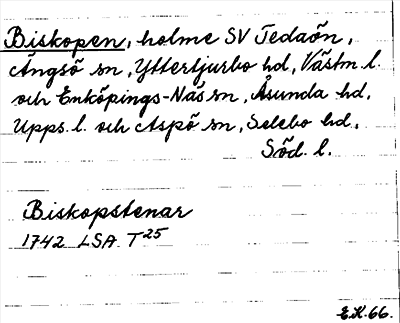 Biskopen, holme SV Tedaön,
Ängsö sn, Yttertjurbo hd, Västm. l.
och Enköpings-Näs sn, Åsunda hd,
Upps. l. och Aspö sn, Selebo hd,
Söd. l.
Biskopstenar
1742 LSA T25
E.K. 66.